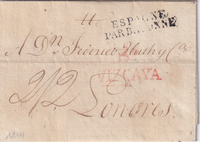 ESPAGNE
PAR BAYONNE
A Dn. Federico Huth y Co.
VIZCAYA
2/2 Londres.